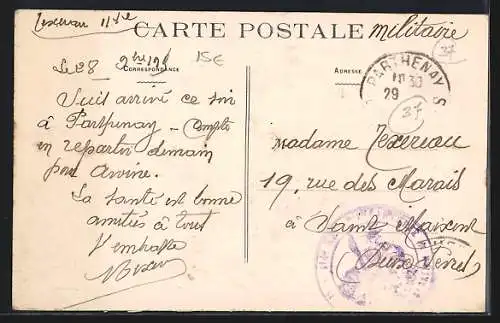 CARTE POSTALE militaire
37
15€
Le 28 9bre
CORRESPONDANCE
ADRESSE
PARTHENAY
29
37
Suis arrivé ce soir
à Parthenay - Compte
en repartir demain
pour
La santé est bonne
amitiés à tout
J'embrasse
Madame Texereau
19, rue des Marais
à Saint Maixent
Deux Sèvres